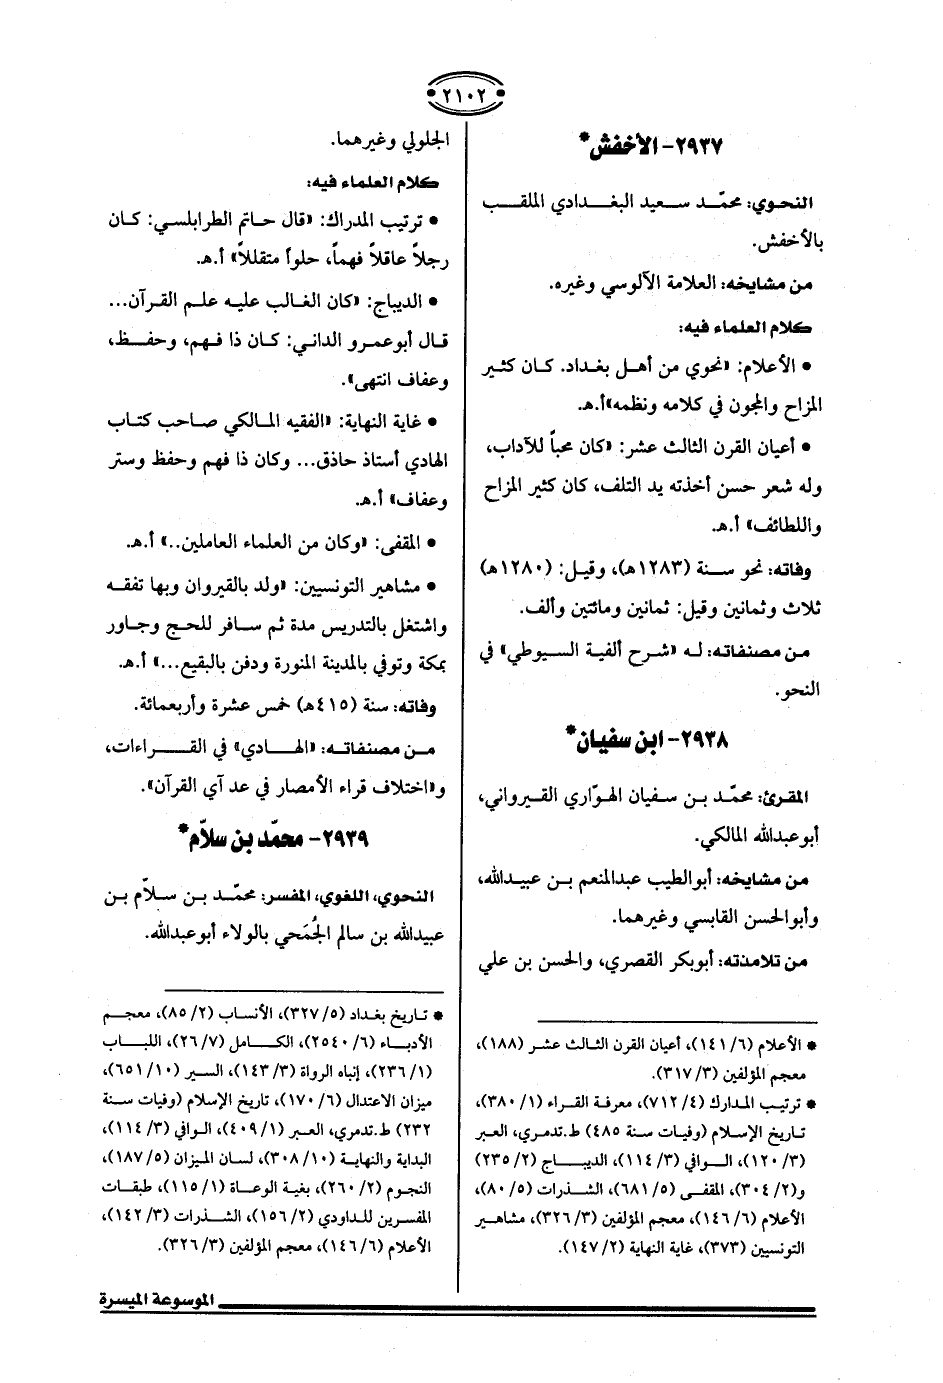 ٢١٠٢
٢٩٣٧- الأخفش*
النحوي: محمّد سعيد البغدادي الملقب
بالأخفش.
من مشايخه: العلامة الآلوسي وغيره.
كلام العلماء فيه:
• الأعلام: «نحوي من أهل بغداد. كان كثير
المزاح والمجون في كلامه ونظمه» أ.هـ.
• أعيان القرن الثالث عشر: «كان محباً للآداب،
وله شعر حسن أخذته يد التلف، كان كثير المزاح
واللطائف» أ.هـ.
وفاته: نحو سنة (١٢٨٣هـ)، وقيل: (١٢٨٠هـ)
ثلاث وثمانين وقيل: ثمانين ومائتين وألف.
من مصنفاته: له «شرح ألفية السيوطي» في
النحو.
٢٩٣٨- ابن سفيان*
المقرئ: محمّد بن سفيان الهوّاري القيرواني،
أبو عبدالله المالكي.
من مشايخه: أبو الطيب عبدالمنعم بن عبيدالله،
وأبو الحسن القابسي وغيرهما.
من تلامذته: أبوبكر القصري، والحسن بن علي
* الأعلام (٦/ ١٤١)، أعيان القرن الثالث عشر (١٨٨)،
معجم المؤلفين (٣/ ٣١٧).
* ترتيب المدارك (٤/ ٧١٢)، معرفة القراء (١/ ٣٨٠)،
تاريخ الإسلام (وفيات سنة ٤٨٥) ط. تدمري، العبر
(٣/ ١٢٠)، الوافي (٣/ ١١٤)، الديباج (٢/ ٢٣٥)
و(٢/ ٣٠٤)، المقفى (٥/ ٦٨١)، الشذرات (٥/ ٨٠)،
الأعلام (٦/ ١٤٦)، معجم المؤلفين (٣/ ٣٢٦)، مشاهير
التونسيين (٣٧٣)، غاية النهاية (٢/ ١٤٧).
الجلولي وغيرهما.
كلام العلماء فيه:
• ترتيب المدراك: «قال حاتم الطرابلسي: كان
رجلاً عاقلاً فهماً، حلواً متقللاً» أ.هـ.
• الديباج: «كان الغالب عليه علم القرآن...
قال أبو عمرو الداني: كان ذا فهم، وحفظ،
وعفاف انتهى».
• غاية النهاية: «الفقيه المالكي صاحب كتاب
الهادي أستاذ حاذق... وكان ذا فهم وحفظ وستر
وعفاف» أ.هـ.
• المقفى: «وكان من العلماء العاملين..» أ.هـ.
• مشاهير التونسيين: «ولد بالقيروان وبها تفقه
واشتغل بالتدريس مدة ثم سافر للحج وجاور
بمكة وتوفي بالمدينة المنورة ودفن بالبقيع...» أ.هـ.
وفاته: سنة (٤١٥هـ) خمس عشرة وأربعمائة.
من مصنفاته: «الهادي» في القراءات،
و«اختلاف قراء الأمصار في عد آي القرآن».
٢٩٣٩- محمّد بن سلاّم*
النحوي، اللغوي، المفسر: محمّد بن سلاّم بن
عبيدالله بن سالم الجُمَحي بالولاء أبو عبدالله.
* تاريخ بغداد (٥/ ٣٢٧)، الأنساب (٢/ ٨٥)، معجم
الأدباء (٦/ ٢٥٤٠)، الكامل (٧/ ٢٦)، اللباب
(١/ ٢٣٦)، إنباه الرواة (٣/ ١٤٣)، السير (١٠/ ٦٥١)،
ميزان الاعتدال (٦/ ١٧٠)، تاريخ الإسلام (وفيات سنة
٢٣٢) ط. تدمري، العبر (١/ ٤٠٩)، الوافي (٣/ ١١٤)،
البداية والنهاية (١٠/ ٣٠٨)، لسان الميزان (٥/ ١٨٧)،
النجوم (٢/ ٢٦٠)، بغية الوعاة (١/ ١١٥)، طبقات
المفسرين للداودي (٢/ ١٥٦)، الشذرات (٣/ ١٤٢)،
الأعلام (٦/ ١٤٦)، معجم المؤلفين (٣/ ٣٢٦).
الموسوعة الميسرة